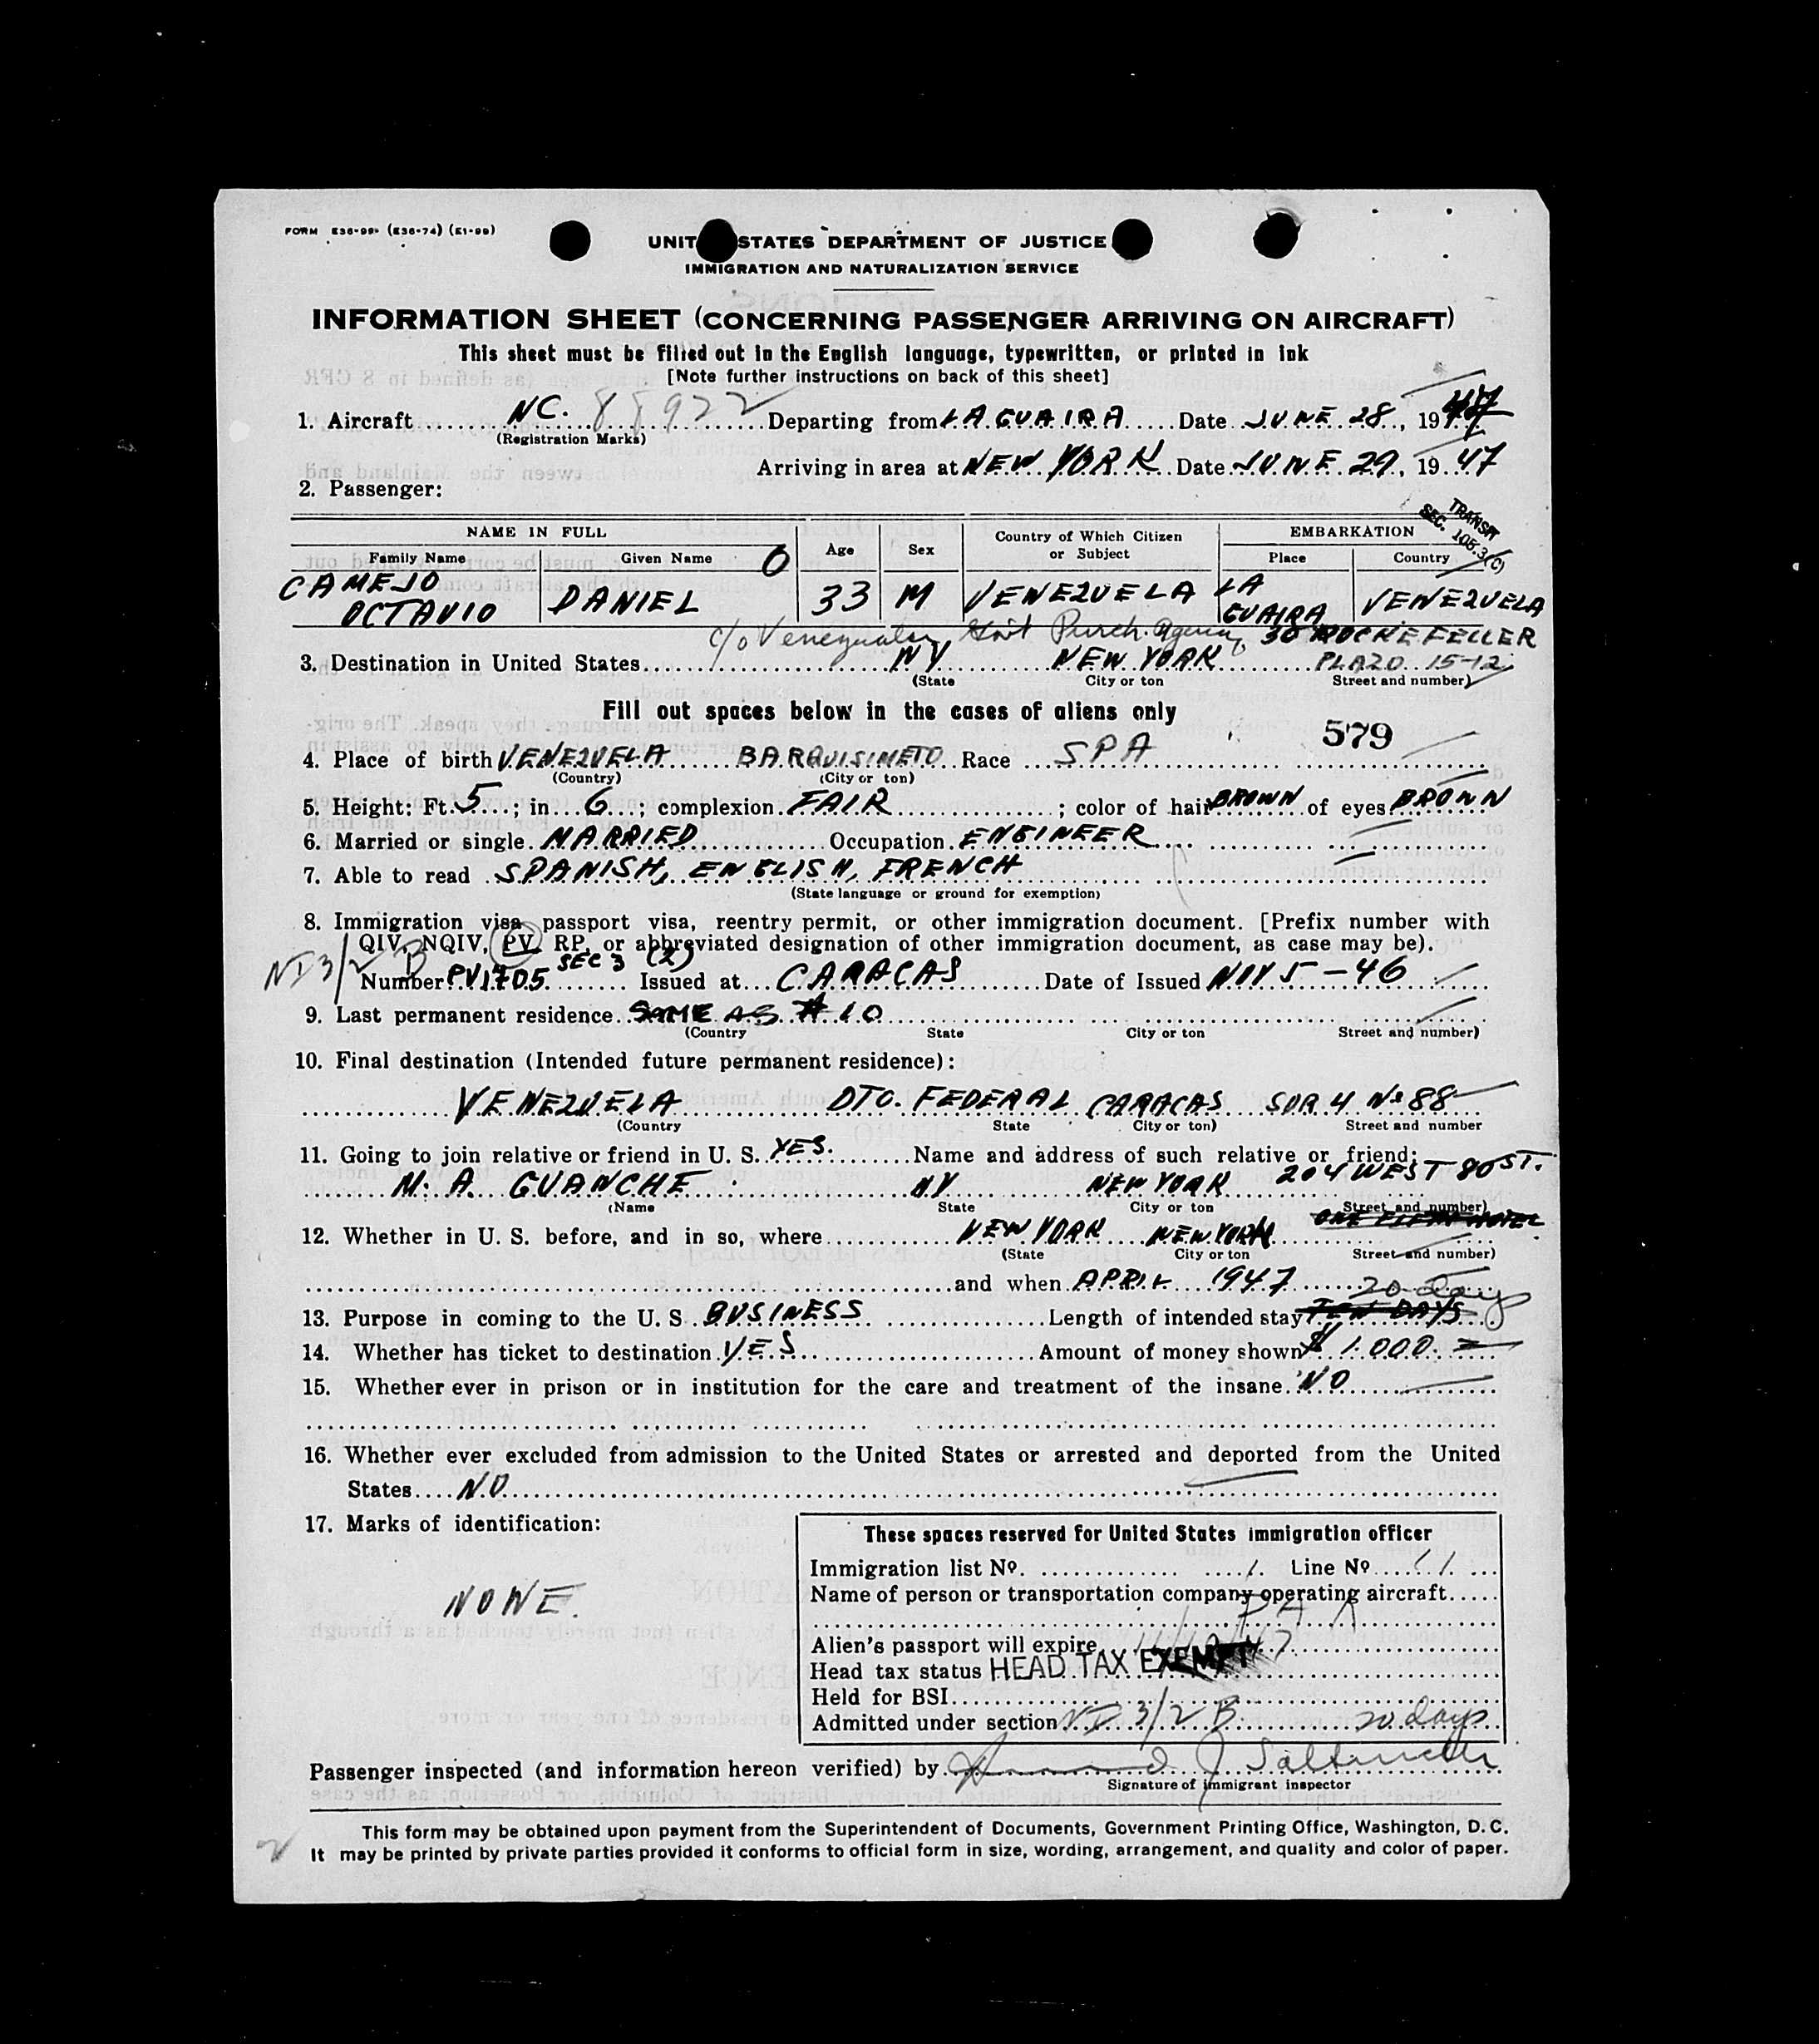 FORM E36-99- (E36-74) (E1-99)
UNIT STATES DEPARTMENT OF JUSTICE
IMMIGRATION AND NATURALIZATION SERVICE
INFORMATION SHEET (CONCERNING PASSENGER ARRIVING ON AIRCRAFT)
This sheet must be filled out in the English language, typewritten, or printed in ink
[Note further instructions on back of this sheet]
1. Aircraft NC. 88922 Departing from LA GUAIRA Date JUNE 28, 1947
(Registration Marks)
Arriving in area at NEW YORK Date JUNE 29, 1947
2. Passenger:
TRANSIT
SEC. 105.3(c)
NAME IN FULL Age Sex Country of Which Citizen or Subject EMBARKATION
Family Name Given Name O Place Country
CAMEJO OCTAVIO DANIEL 33 M VENEZUELA LA GUAIRA VENEZUELA
c/o Venezuelan Gov't Purch. Agency 30 ROCKEFELLER
3. Destination in United States NY NEW YORK PLAZO 15-12
(State City or ton Street and number)
Fill out spaces below in the cases of aliens only
579
4. Place of birth VENEZUELA BARQUISIMETO Race SPA
(Country) (City or ton)
5. Height: Ft. 5; in 6; complexion FAIR; color of hair BROWN of eyes BROWN
6. Married or single MARRIED Occupation ENGINEER
7. Able to read SPANISH, ENGLISH, FRENCH
(State language or ground for exemption)
8. Immigration visa passport visa, reentry permit, or other immigration document. [Prefix number with
QIV, NQIV, PV, RP, or abbreviated designation of other immigration document, as case may be).
NI 3/2 B SEC 3 (2)
Number PV1705 Issued at CARACAS Date of Issued NOV 5-46
9. Last permanent residence SAME AS # 10
(Country State City or ton Street and number)
10. Final destination (Intended future permanent residence):
VENEZUELA DTO. FEDERAL CARACAS SUR 4 Nº 88
(Country State City or ton) Street and number
11. Going to join relative or friend in U. S. YES. Name and address of such relative or friend:
M. A. GUANCHE NY NEW YORK 204 WEST 80 ST.
(Name State City or ton Street and number)
12. Whether in U. S. before, and in so, where NEW YORK NEW YORK
(State City or ton Street and number)
and when APRIL 1947
20 days
13. Purpose in coming to the U. S BUSINESS Length of intended stay TEN DAYS
14. Whether has ticket to destination YES Amount of money shown $ 1.000.
15. Whether ever in prison or in institution for the care and treatment of the insane. NO
16. Whether ever excluded from admission to the United States or arrested and deported from the United
States NO
17. Marks of identification:
NONE.
These spaces reserved for United States immigration officer
Immigration list Nº. 1 Line Nº 11
Name of person or transportation company operating aircraft
PAA
Alien's passport will expire
Head tax status HEAD TAX EXEMPT
Held for BSI
Admitted under section NI 3/2 B 20 days
Passenger inspected (and information hereon verified) by
Signature of immigrant inspector
This form may be obtained upon payment from the Superintendent of Documents, Government Printing Office, Washington, D. C.
It may be printed by private parties provided it conforms to official form in size, wording, arrangement, and quality and color of paper.